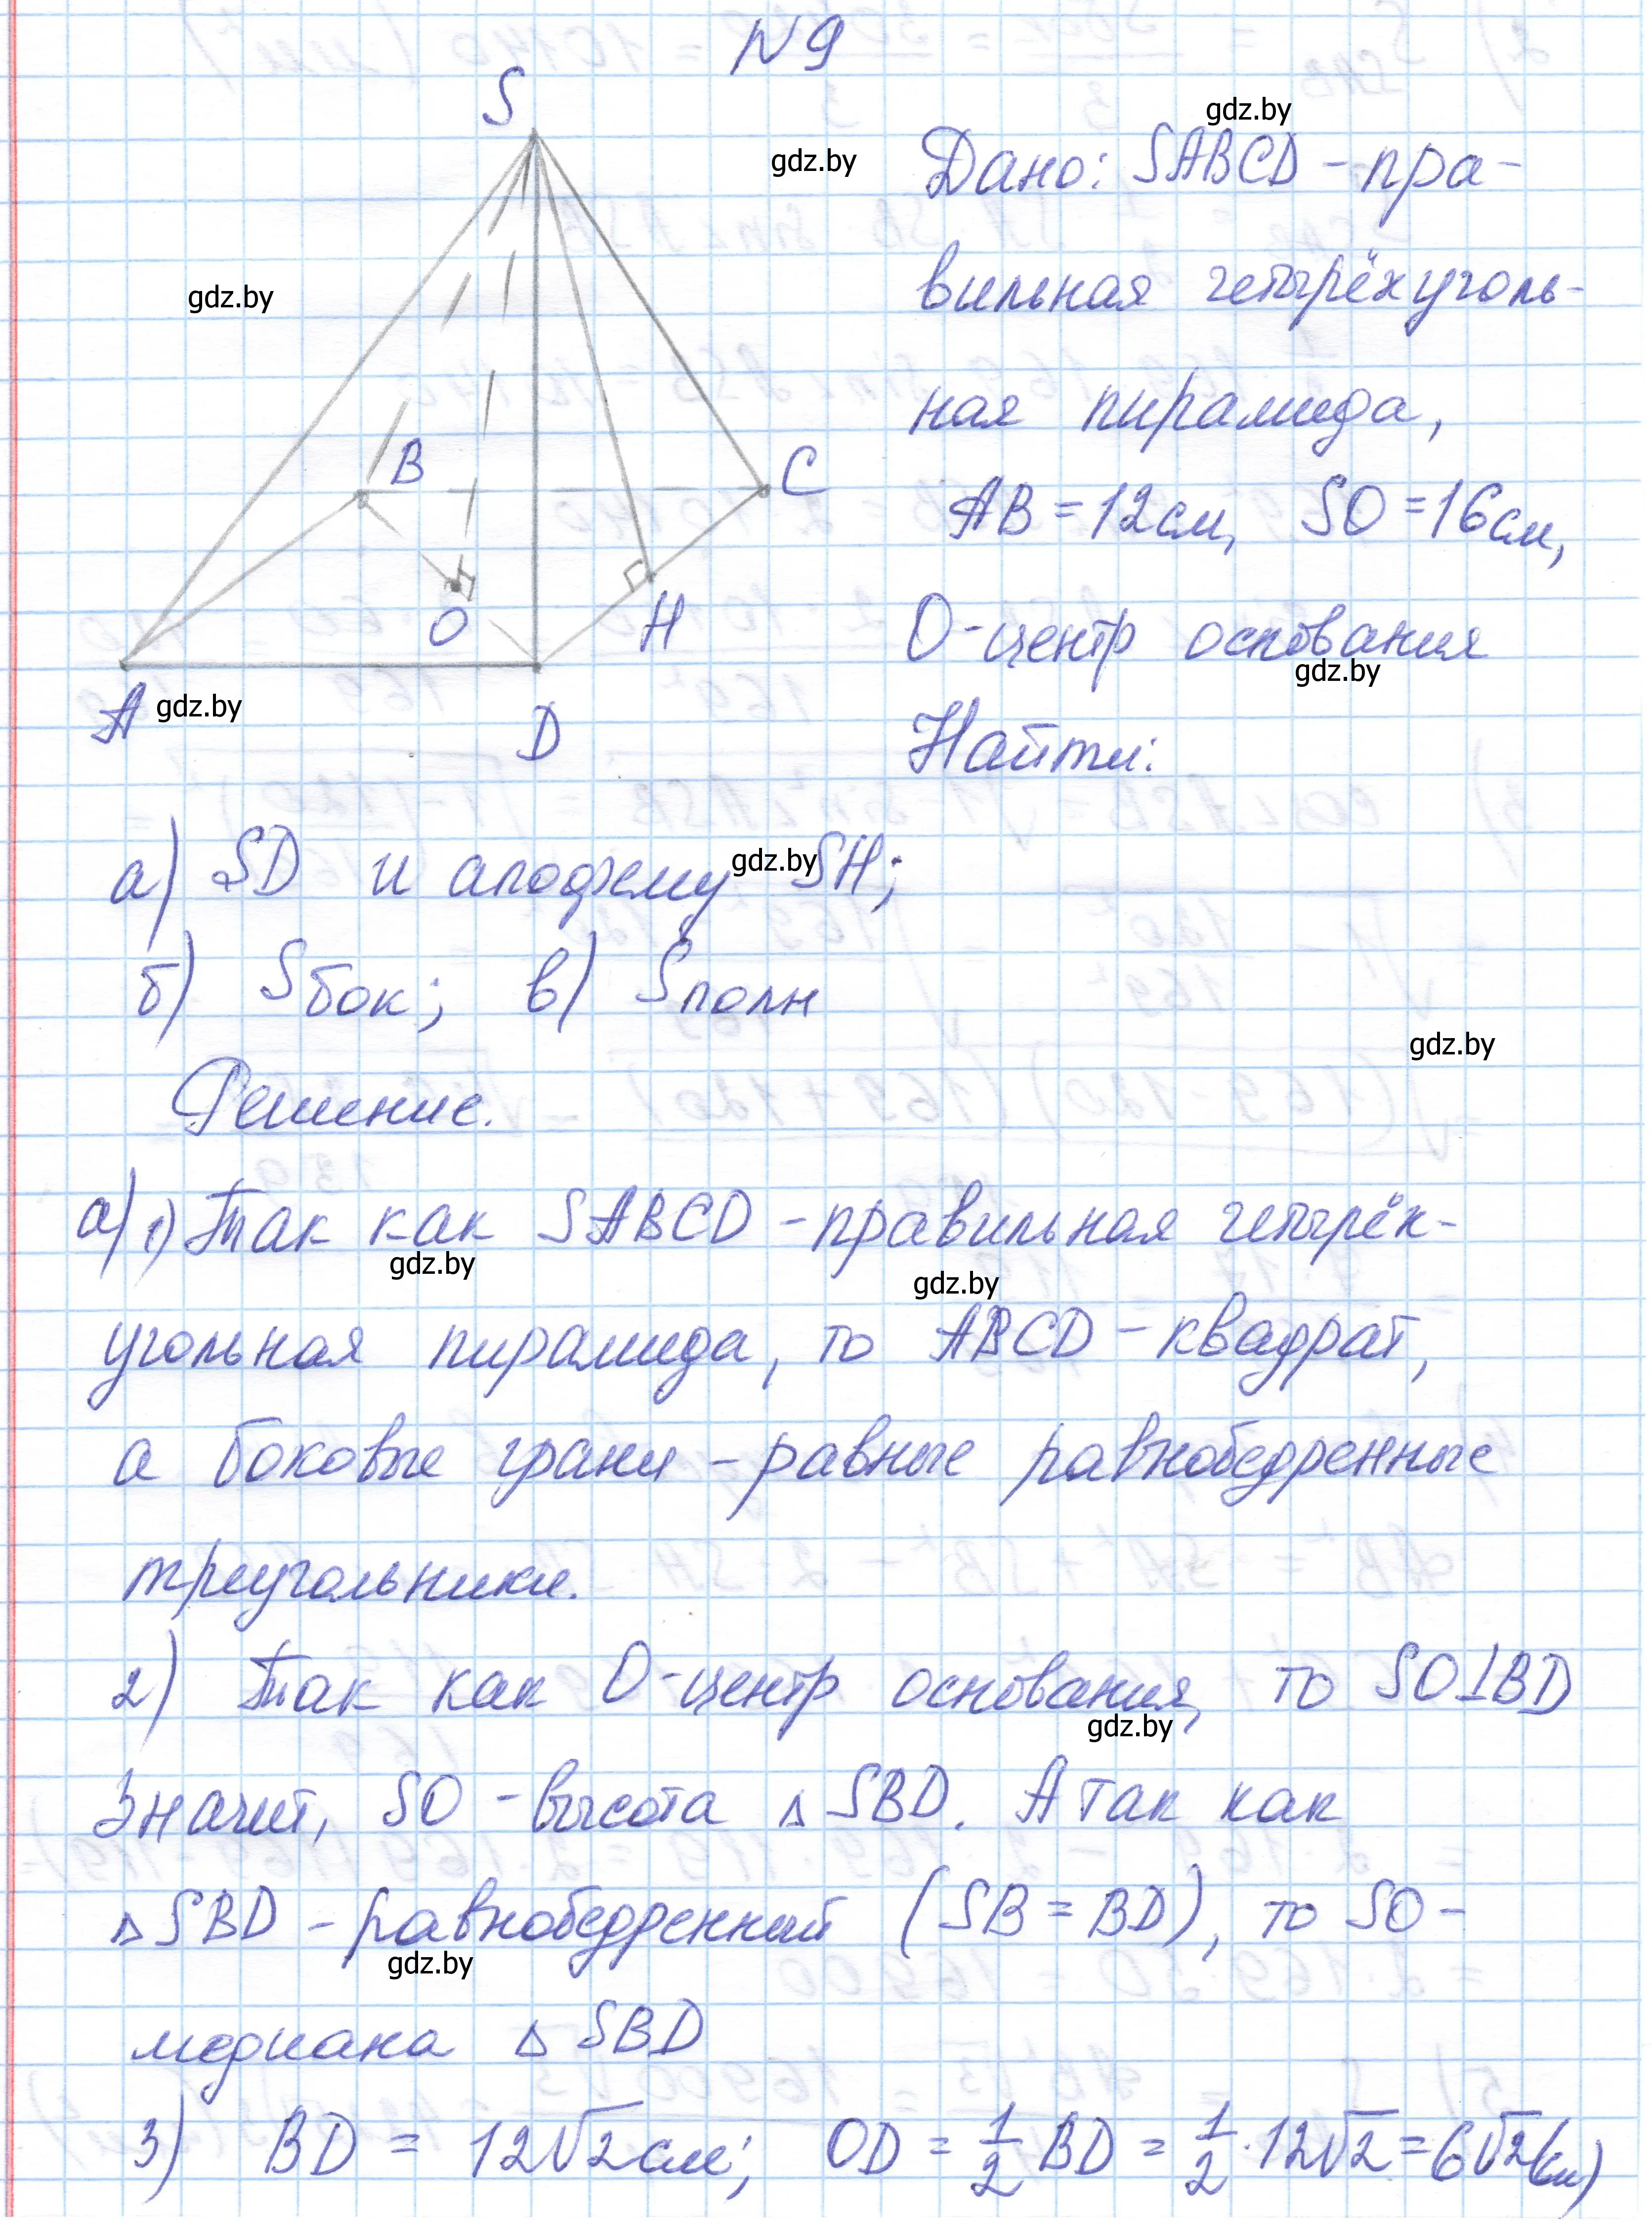 N9
S
gdz.by
gdz.by
Дано: SABCD - пра-
gdz.by
вильная четырёхуголь-
ная пирамида,
B
C
AB = 12 см, SO = 16 см,
O
H
O - центр основания
gdz.by
A
gdz.by
D
Найти:
а) SD и апофему SH;
gdz.by
б) Sбок; в) Sполн
gdz.by
Решение.
а) 1) Так как SABCD - правильная четырёх-
gdz.by
gdz.by
угольная пирамида, то ABCD - квадрат,
а боковые грани - равные равнобедренные
треугольники.
2) Так как O - центр основания, то SO⊥BD
gdz.by
Значит, SO - высота ▵ SBD. А так как
▵ SBD - равнобедренный (SB = BD), то SO -
gdz.by
медиана ▵ SBD
3) BD = 12√2 см; OD = 1/2 BD = 1/2 · 12√2 = 6√2 (см)